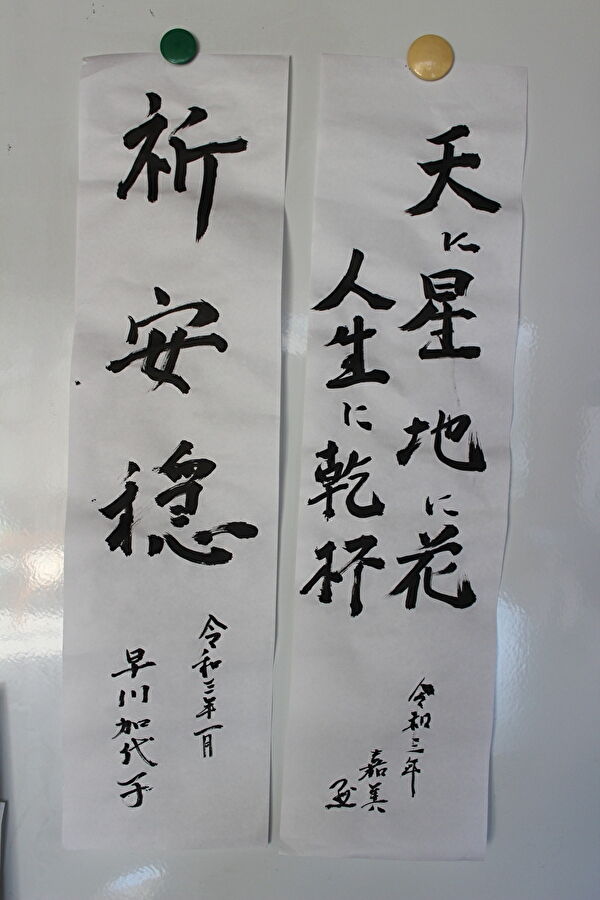 天に星 地に花
人生に乾杯
令和三年
嘉美
祈安穏
令和三年一月
早川加代子